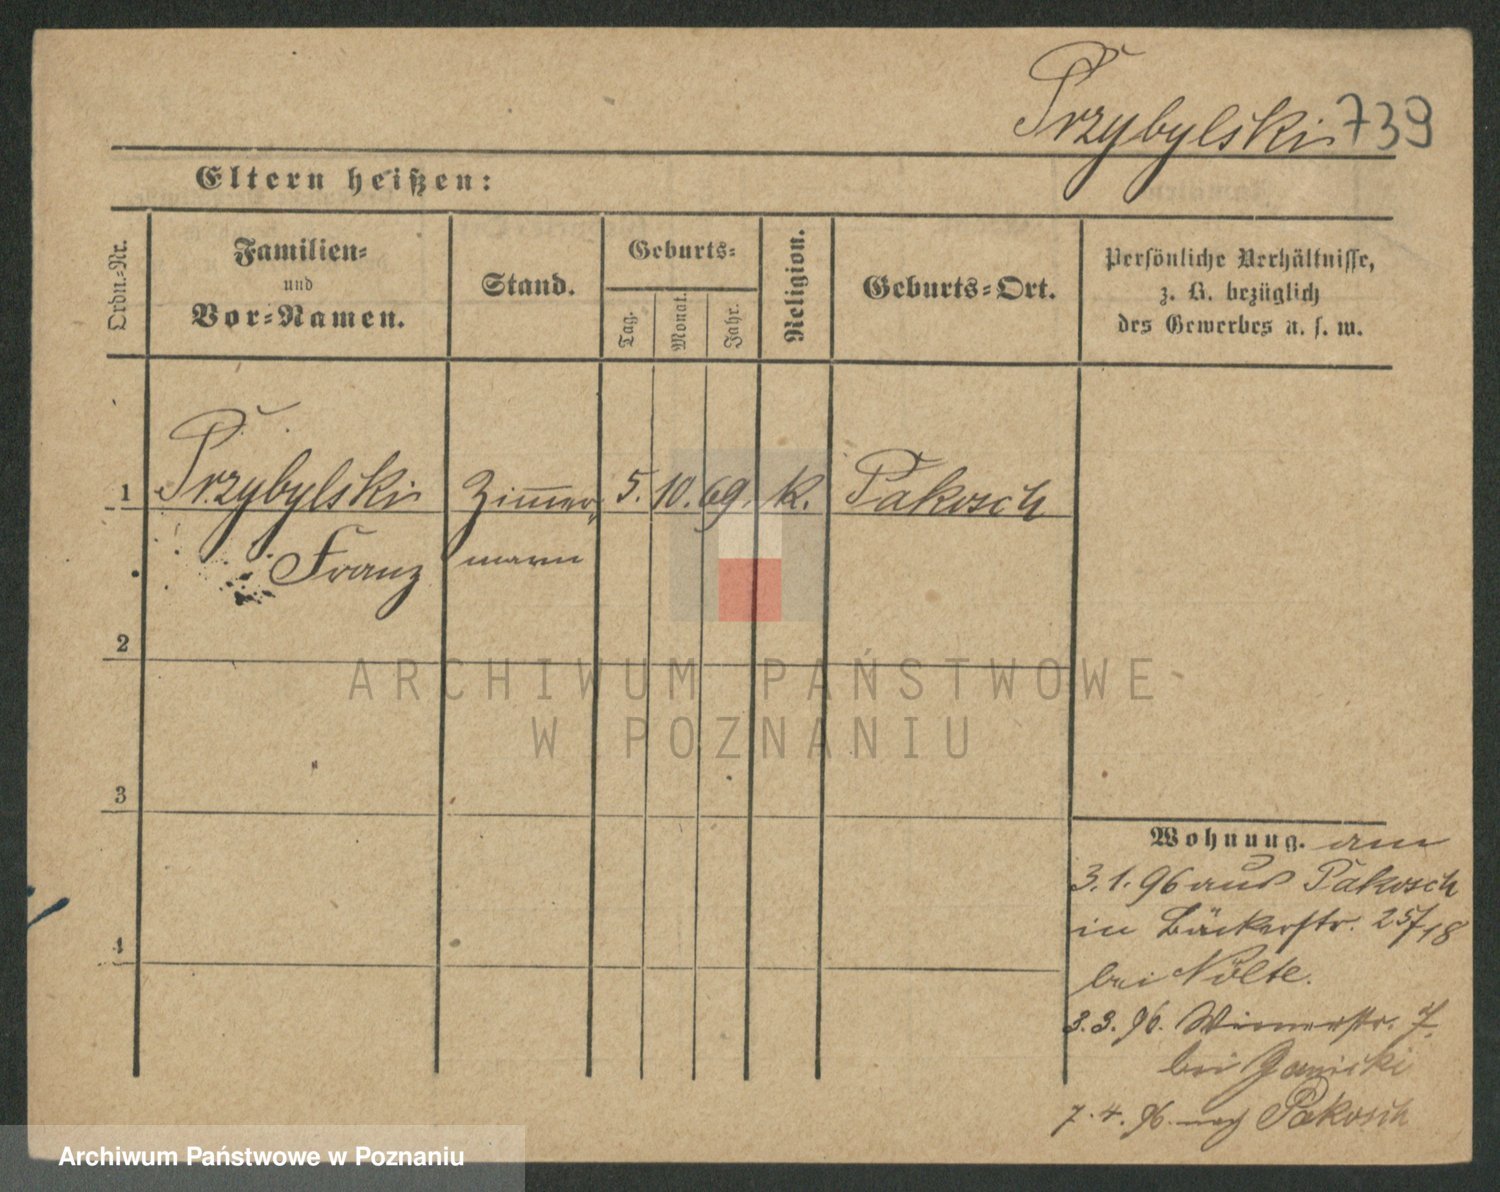 Przybylski 739
Eltern heißen:
Ordn.-Nr.
Familien-
und
Vor-Namen.
Stand.
Geburts-
Tag.
Monat.
Jahr.
Religion.
Geburts-Ort.
Persönliche Verhältnisse,
z. B. bezüglich
des Gewerbes u. s. w.
1 Przybylski Zimmer- 5. 10. 69. k. Pakosch
Franz mann
2
3
4
Wohnung. am
3.1.96 aus Pakosch
in Bäckerstr. 25/18
bei Nölte.
3.3.96. Wienerstr. 7.
bei Janicki
7.4.96. nach Pakosch
ARCHIWUM PAŃSTWOWE
W POZNANIU
Archiwum Państwowe w Poznaniu